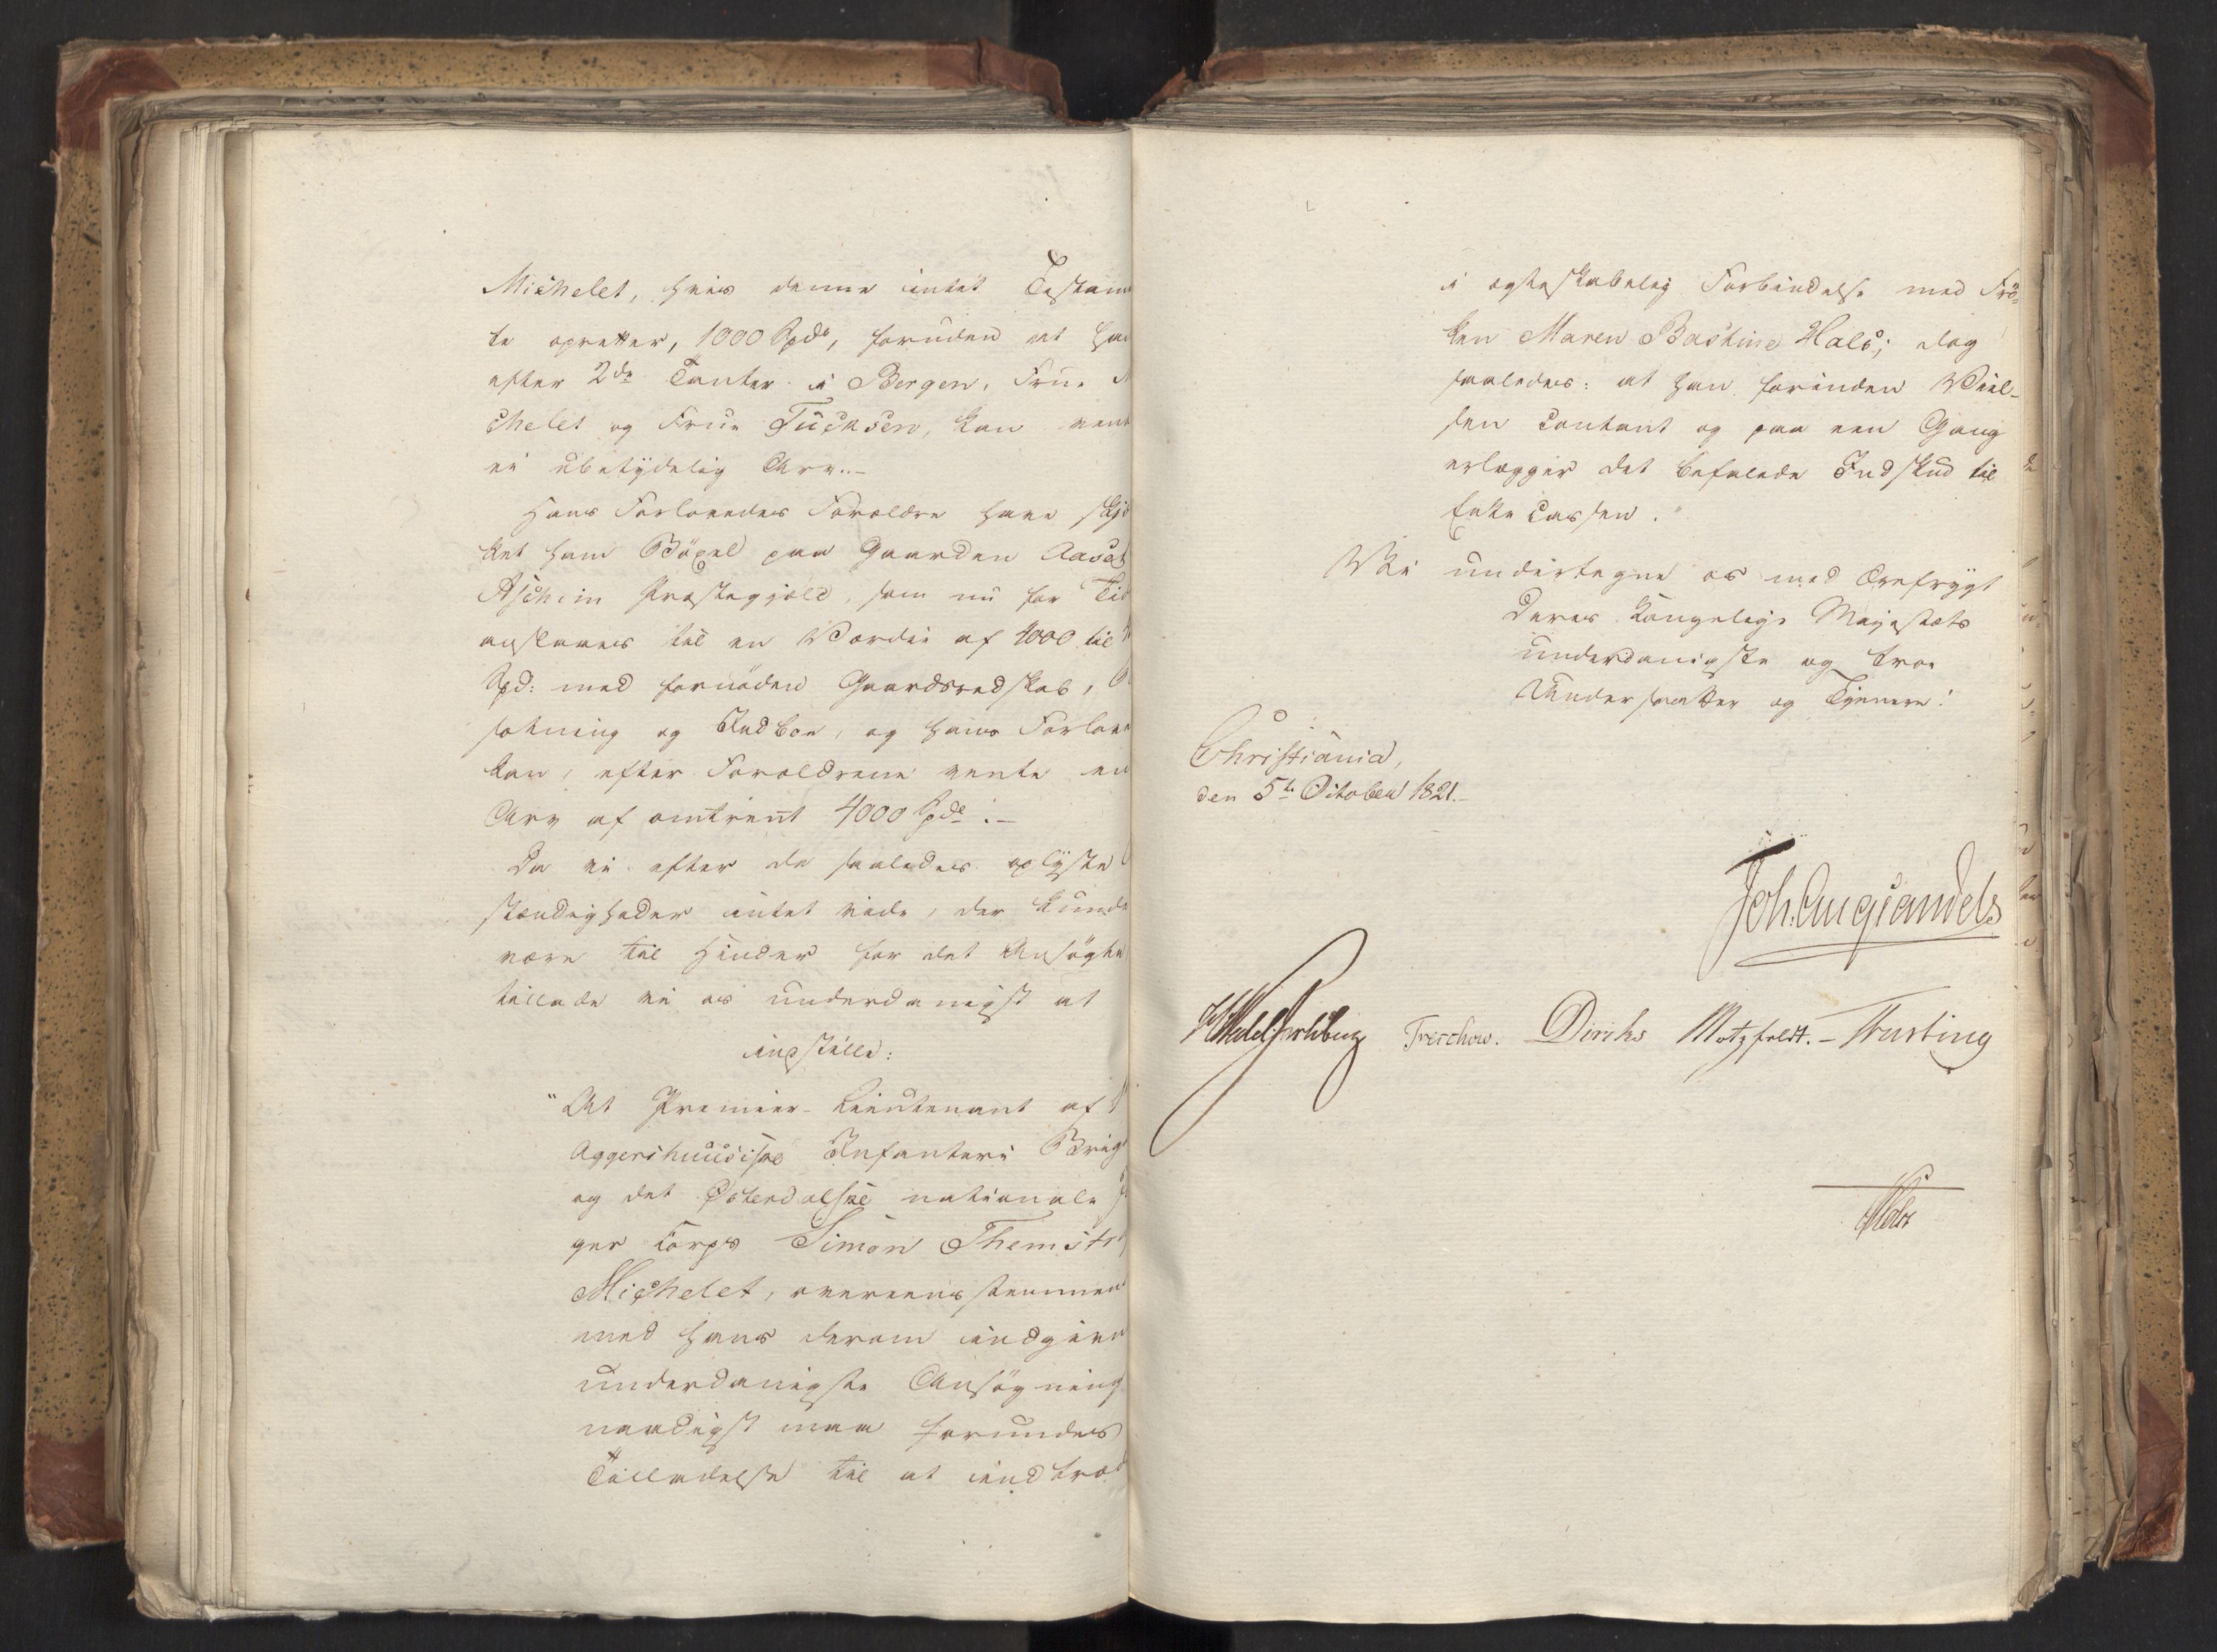 Michelet, hvis denne intet Testam
te opretter, 1000 Spd, foruden at han
efter 2de Tanter i Bergen, Frue
chelet og Frue Fücksen, kan vent
ei ubetydelig Arv.–
Hans Forlovedes Forældre have skjö
ket ham Böxel paa Gaarden Aaset
Aschim Præstegjeld, som nu for Tid
anslaaes til en Værdie af 4000 til
Spd: med fornöden Gaardsredskab,
sætning og Indboe, og hans Forlov
kan, efter Forældrene vente en
Arv af omtrent 4000 Spd.–
Da vi efter de saaledes oplyste
stændigheder intet vide, der kunde
være til Hinder for det Ansögte
tillade vi os underdanigst at
indstille:
"At Premier-Lieutenant af
Aggershuusiske Infanterie Brig
og det Österdalske nationale
ger Corps Simon Themstr
Michelet, overeensstemmen
med hans derom indgivn
underdanigste Ansögning
naadigst maa forundes
Tilladelse til at indtræd
i ægteskabelig Forbindelse med Frö-
ken Maren Bastine Hals; dog
saaledes: at han forinden Viel-
sen contant og paa een Gang
erlægger det befalede Indskud til
Enke Cassen."
Vi undertegne os med Ærefrygt
Deres Kongelige Majestæts
underdanigste og troe
Undersaatter og Tjenere!
Christiania,
den 5te October 1821.–
Joh. Aug Sandels
HWedelJarlsberg Treschow. Diriks Motzfeldt. – Krusting